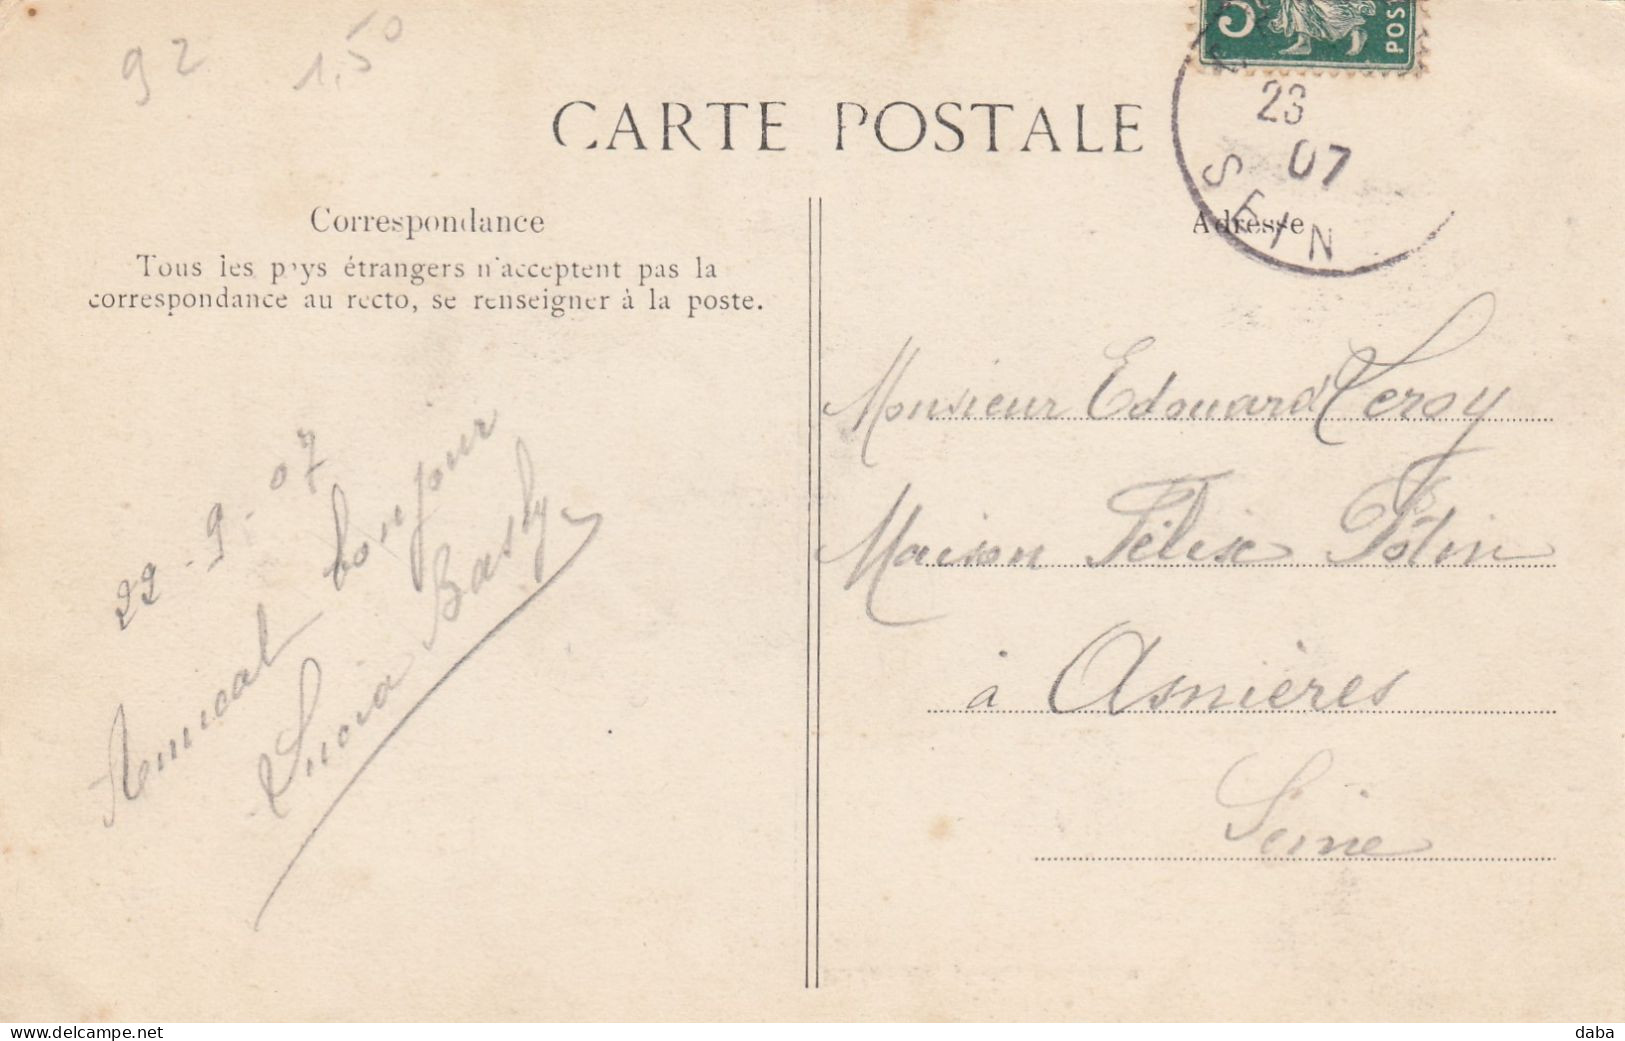 92 1,50
CARTE POSTALE
5 POS
23
07
SEIN
Correspondance
Tous les pays étrangers n'acceptent pas la
correspondance au recto, se renseigner à la poste.
Adresse
22-9-07
Amical bonjour
Lucia Basly
Monsieur Edouard Leroy
Maison Félix Potin
à Asnières
Seine
www.delcampe.net
daba